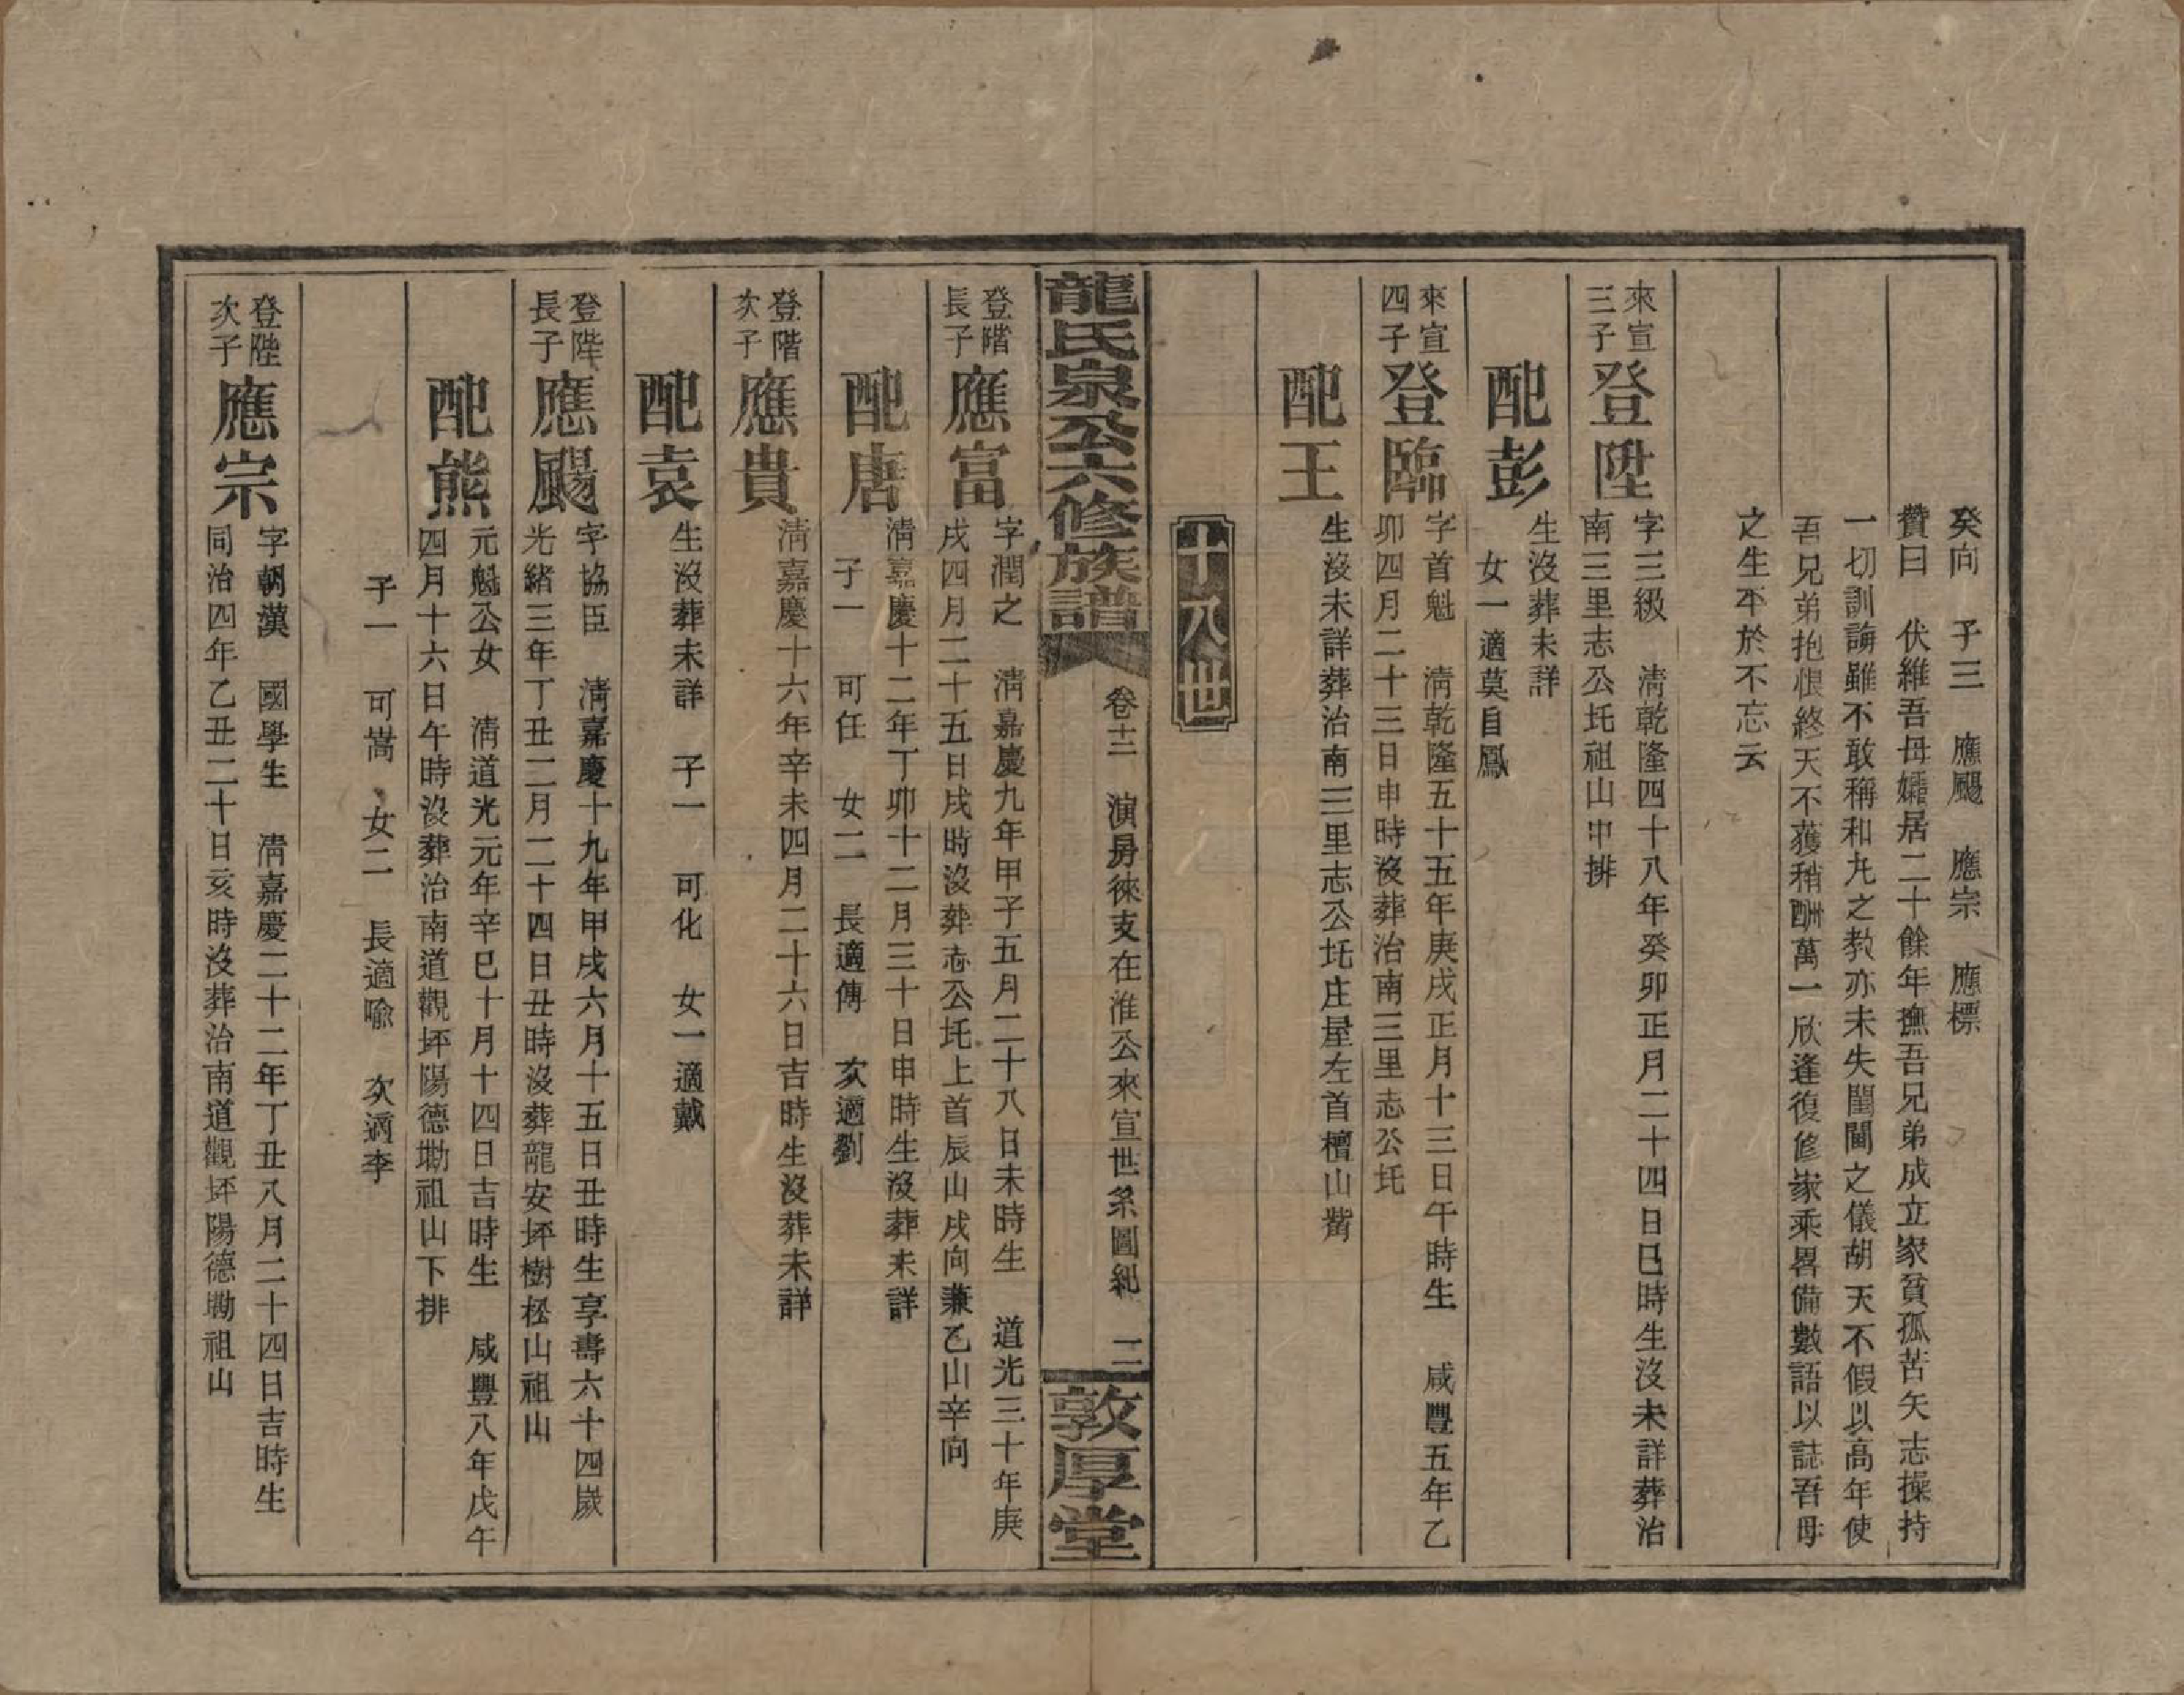 癸向　子三　應颺　應宗　應標
贊曰　伏維吾母孀居二十餘年撫吾兄弟成立家貧孤苦矢志操持
一切訓誨雖不敢稱和丸之教亦未失閨閫之儀胡天不假以高年使
吾兄弟抱恨終天不獲稍酬萬一欣逢復修家乘畧備數語以誌吾母
之生平於不忘云
來宣三子
登陞
字三級　清乾隆四十八年癸卯正月二十四日巳時生沒未詳葬治
南三里志公圫祖山中排
配彭
生沒葬未詳
女一適莫自鳳
來宣四子
登臨
字首魁　清乾隆五十五年庚戌正月十三日午時生　咸豐五年乙
卯四月二十三日申時沒葬治南三里志公圫
配王
生沒未詳葬治南三里志公圫庄屋左首檀山觜
十八世
龍氏泉公六修族譜
卷十二　演房徠支在淮公來宣世系圖紀　二
敦厚堂
登階長子
應富
字潤之　清嘉慶九年甲子五月二十八日未時生　道光三十年庚
戌四月二十五日戌時沒葬志公圫上首辰山戌向兼乙山辛向
配唐
清嘉慶十二年丁卯十二月三十日申時生沒葬未詳
子一　可任　女二　長適傅　次適劉
登階次子
應貴
清嘉慶十六年辛未四月二十六日吉時生沒葬未詳
配袁
生沒葬未詳　子一　可化　女一適戴
登陛長子
應颺
字協臣　清嘉慶十九年甲戌六月十五日丑時生享壽六十四歲
光緒三年丁丑二月二十四日丑時沒葬龍安坪樹松山祖山
配熊
元魁公女　清道光元年辛巳十月十四日吉時生　咸豐八年戊午
四月十六日午時沒葬治南道觀坪陽德坳祖山下排
子一　可嵩　女二　長適喻　次適李
登陛次子
應宗
字朝漢　國學生　清嘉慶二十二年丁丑八月二十四日吉時生
同治四年乙丑二十日亥時沒葬治南道觀坪陽德坳祖山